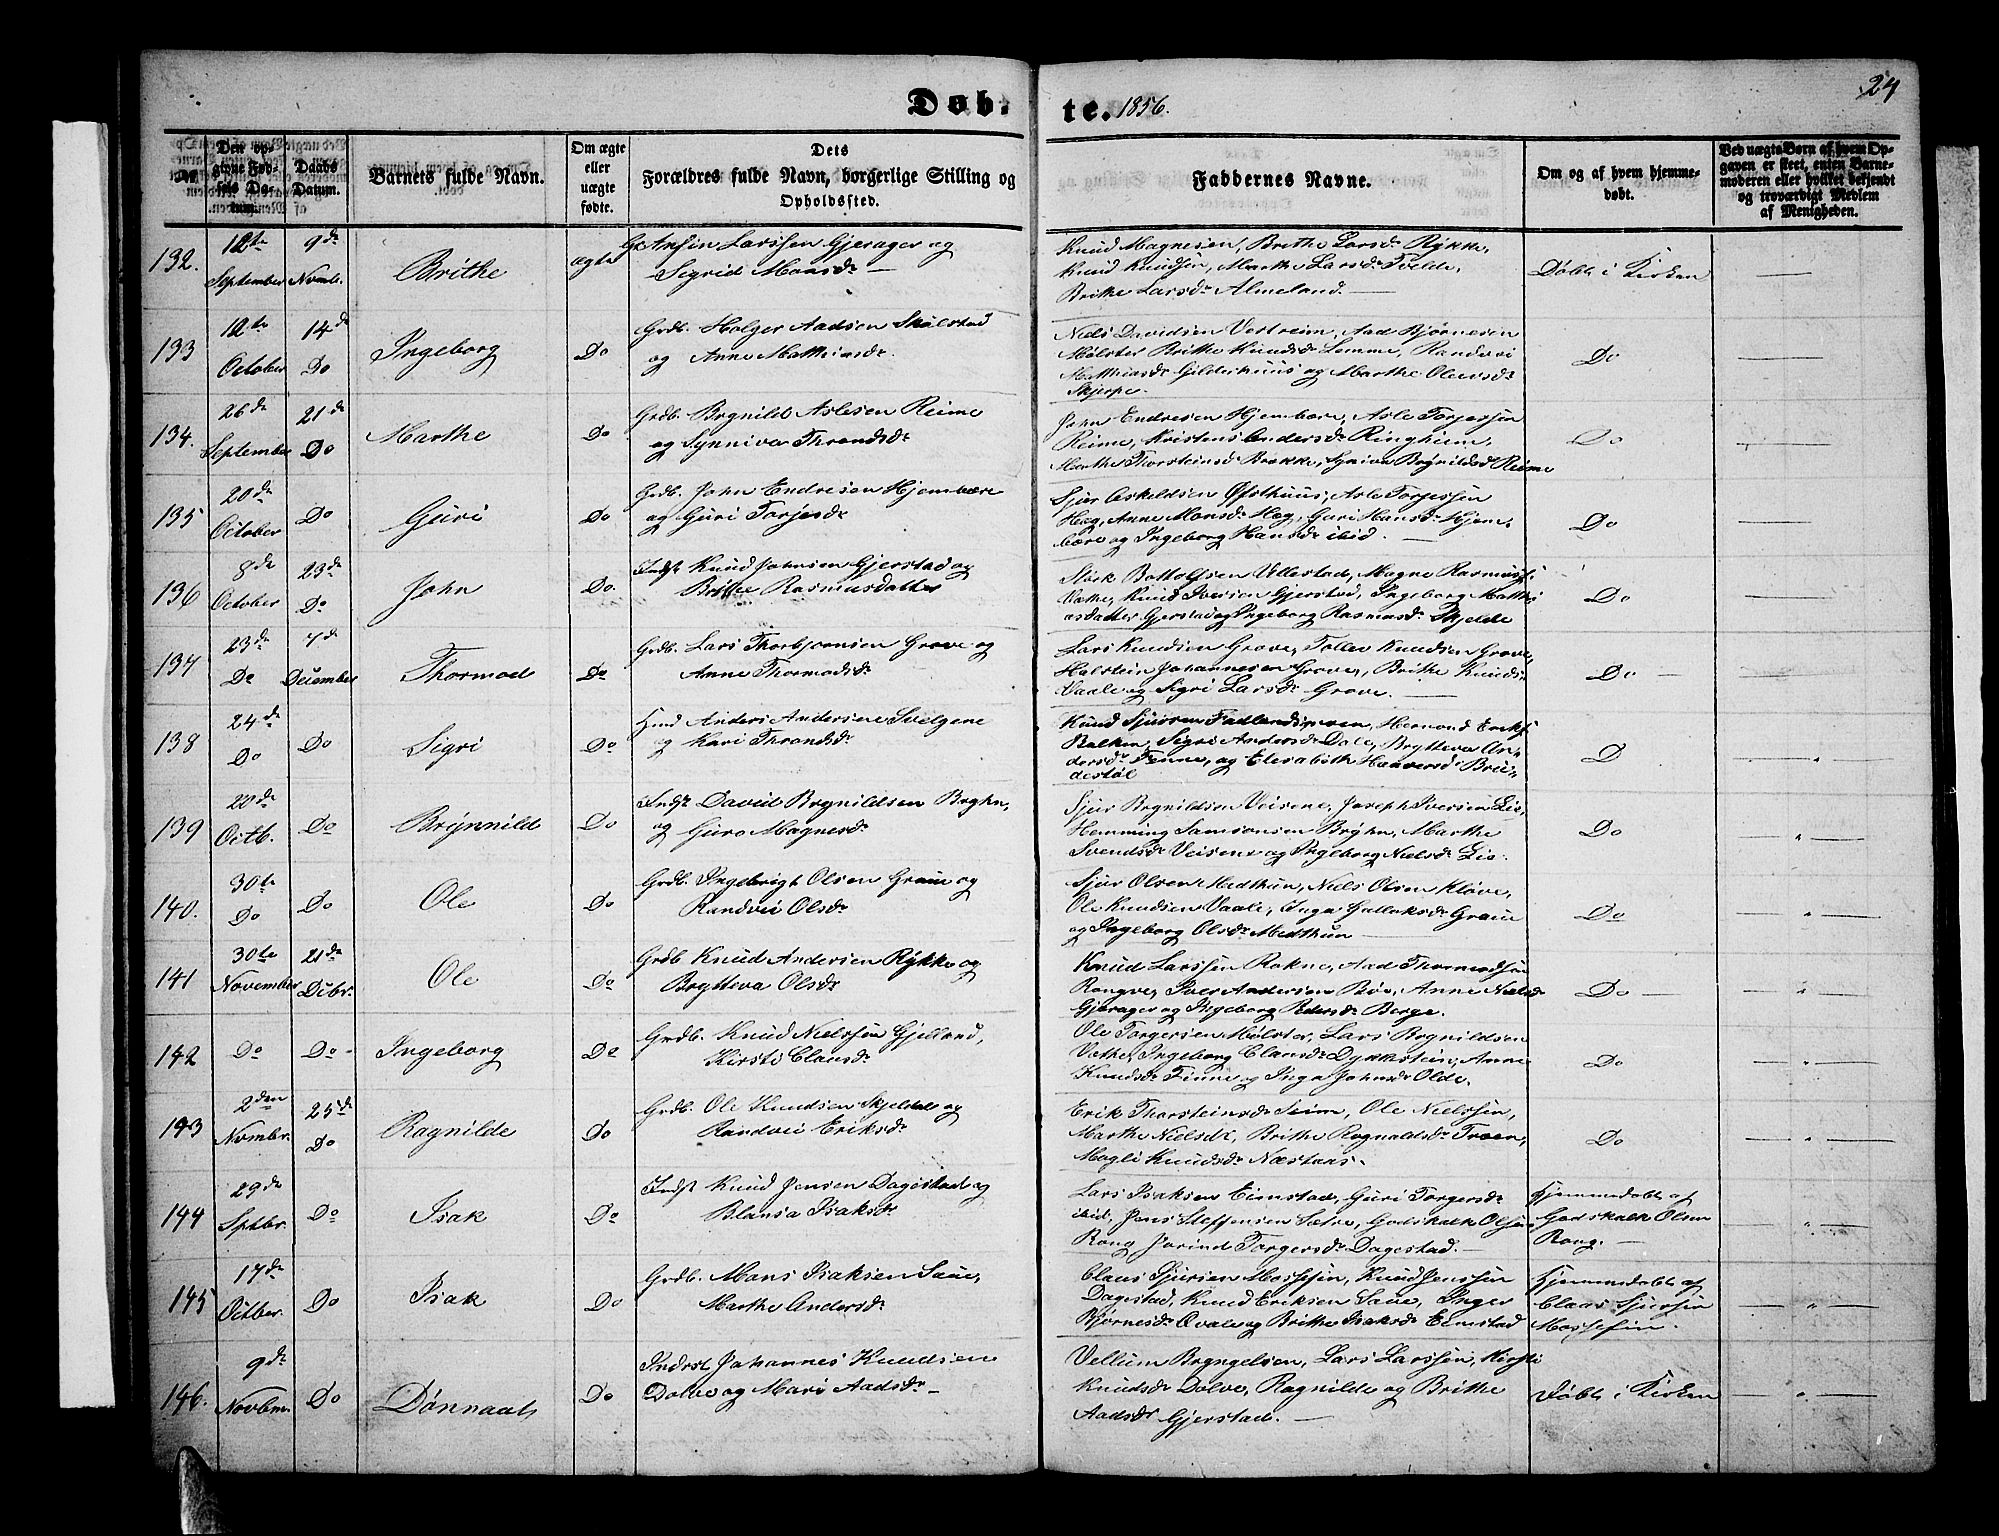 Døb-
te. 1856.
24
№
Den op-
givne Fød-
sels Da-
tum.
Daabs
Datum.
Barnets fulde Navn.
Om ægte
eller
uægte
fødte.
Dets
Forældres fulde Navn, borgerlige Stilling og
Opholdssted.
Faddernes Navne.
Om og af hvem hjemme-
døbt.
Ved uægte Børn af hvem Op-
gaven er skeet, enten Barne-
moderen eller hvilket bekjendt
og troværdigt Medlem
af Menigheden.
132.
12te
September
9de
Novmb.
Brithe
ægte
Ansin Larssen Gjerager og
Sigrid Monsdr
Knud Magnesen, Brithe Larsdr Rykke,
Knud Knudsen, Marthe Larsdr Tvelde,
Brithe Larsdr Almeland.
Døbt i Kirken
133
12te
October
14de
Do
Ingeborg
Do
Grdb. Holger Aadsen Skulstad
og Anne Mathiasdr
Niels Davidsen Vestreim, Aad Bjørnesen
Mølster Brithe Knudsdr Lemme, Randvei
Mathiasdr Gilderhuus og Marthe Olevsdr
Skjerpe.
Do
134.
26de
September
21de
Do
Marthe
Do
Grdb. Brynild Aslesen Reime
og Synniva Throndsdr
John Endresen Hjembære, Asle Torjessen
Reime, Kristens Andersdr Ringheim,
Marthe Thorsteinsd Brække, Syniva Brynildsd Reime
Do
135
20de
October
Do
Guri
Do
Grdb. John Endresen Hjembære
og Guri Torjesdr
Sjur Askildsen Øfsthuus, Asle Torjessen
Hæg, Anne Monsdr Hæg, Guri Hansdr Hjem-
bære og Ingeborg Hansdr ibid.
Do
136
8de
October
23de
Do
John
Do.
Indst Knud Johnsen Gjerstad og
Brithe Rasmusdatter
Størk Bottolfsen Ullestad, Magne Rasmuss.
Vethe, Knud Iversen Gjerstad, Ingeborg Mathi-
asdatter Gjerstad og Ingeborg Rasmusdr Skjelde
Do
137
23de
Do
7de
December
Thormod
Do
Grdb. Lars Thorbjornsen Grove og
Anne Thormodsdr
Lars Knudsen Grove, Tollev Knudsen Grove,
Halstein Johannesen Grove, Brithe Knudsdr
Vaale og Sigri Larsdr Grove.
Do
138
24de
Do
Do
Sigri
Do
Hmd Anders Andersen Svelgene
og Kari Throndsdr
Knud Sjursen Fadlandsmoen, Hermond Eriks.
Balken, Sigri Andersdr Dale, Brytteva An-
dersdr Finne, og Elisabeth Haaversd. Bru-
destøl
D
139
20de
Octb.
Do
Brynnild
Do
Indst David Brynildsen Bryhn,
og Guro Magnesdr
Sjur Brynildsen Veisene, Joseph Iversen Lie,
Hemming Samsonsen Bryhn, Marthe
Svendsdr Veisene og Ingeborg Nielsdr Lie.
Do
140.
30te
Do
Do
Ole
Do
Grdb. Ingebrigt Olsen Graue og
Randvei Olsdr
Sjur Olsen Midthun, Niels Olsen Kløve,
Ole Knudsen Vaale, Inga Gullaksdr Graue
og Ingeborg Olsdr Midthun
Do
141
30te
November
21de
Debr.
Ole
Do
Grdb Knud Andersen Rykke og
Brytteva Olsdr
Knud Larssen Rokne, Aad Thormodsen
Rongve, Iver Andersen Bøe, Anne Nielsd
Gjerager og Ingeborg Pedersdr Berge.
Do
142
Do
Do
Ingeborg
Do
Grdb. Knud Nielssen Gjelland,
Kirsti Clausdr
Ole Torgersen Mølster, Lars Brynildsen
Vethe, Ingeborg Clausdr Dykkstein, Anne
Knudsdr Finne og Inga Johnsdr Olde.
Do
143
2den
Novmbr.
25de
Do
Ragnilde
Do
Grdb. Ole Knudsen Skjeldal og
Randvei Eriksdr
Erik Thorsteinsdr Seim, Ole Nielssen,
Marthe Nielsdr, Brithe Rognaldsdr Troen,
Magli Knudsdr Næstaas.
Do
144
29de
Sptbr.
Do
Isak
Do
Indst Knud Jensen Dagestad og
Blansa Isaksdr
Lars Isaksen Eimstad, Guri Torgersdr
ibid, Jens Steffensen Sætre, Godskalk Olsen
Rong Jorind Torgersdr Dagestad.
Hjemmedøbt af
Godskalk Olsen
Rong.
145
17de
Octber.
Do
Isak
Do
Grdb. Mons Isaksen Saue,
Marthe Andersdr
Claus Sjursen Mossefin, Knud Jenssen
Dagestad, Knud Eriksen Saue, Inger
Bjørnesdr Qvale og Brithe Isaksdr Eimstad
Hjemmedøbt af
Claus Sjursen
Mossefin.
146.
9de
Novbmr.
Do
Dønnaat
Do
Inderst Johannes Knudsen
Dolve og Mari Aadsdr
Vellum Bryngelsen, Lars Larssen, Kirsti
Knudsdr Dolve, Ragnilde og Brithe
Aadsdr Gjerstad.
Døbt i Kirken